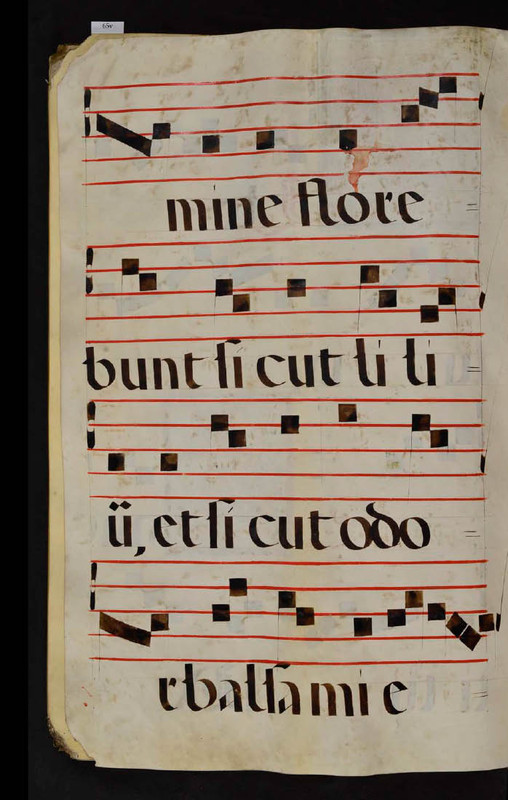 mine flore
bunt ſi cut li li
ii, et ſi cut odo
r balſa mi e